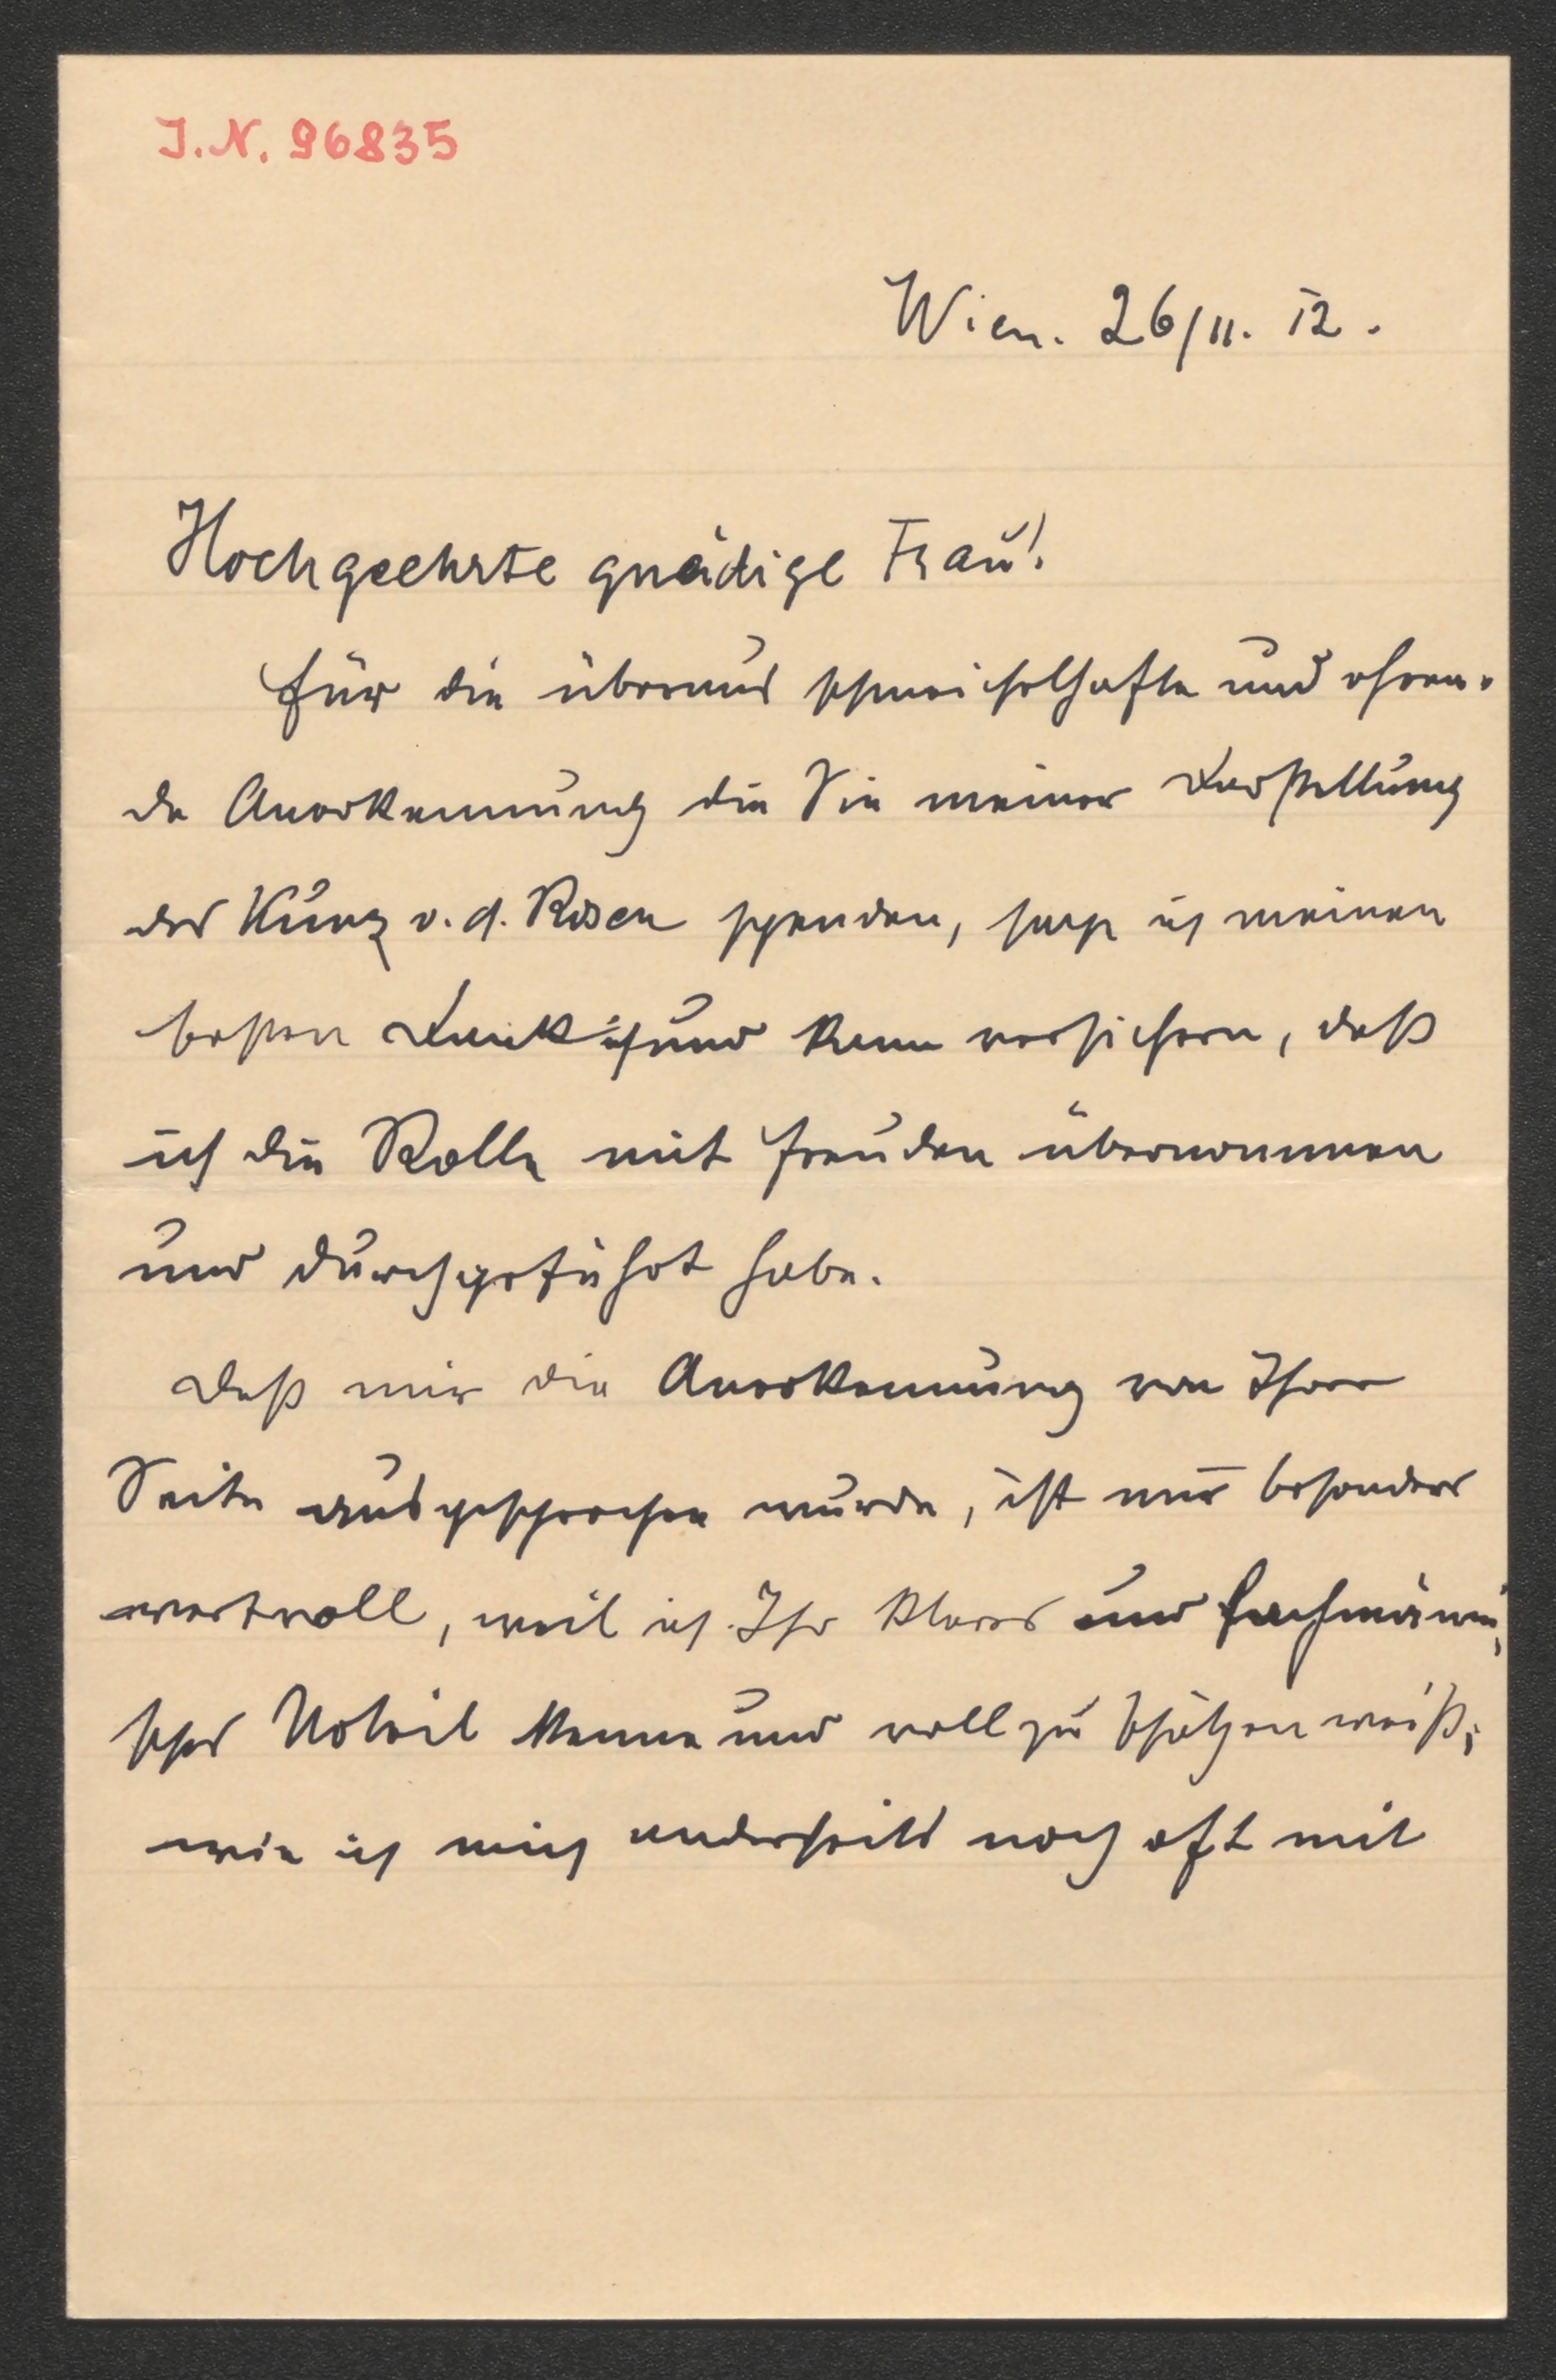 J.N. 96835
Wien. 26/11. 12.
Hochgeehrte gnädige Frau!
für die überaus schmeichelhafte und ehren-
de Anerkennung die Sie meiner Darstellung
des Kunz v. d. Rosen spenden, sage ich meinen
besten Dank und kann versichern, daß
ich die Rolle mit Freuden übernommen
und durchgeführt habe.
Daß mir die Anerkennung von Ihrer
Seite ausgesprochen wurde, ist mir besonders
wertvoll, weil ich Ihr klares und fachmänni-
sches Urteil kenne und voll zu schätzen weiß;
wie ich mich anderseits noch oft mit